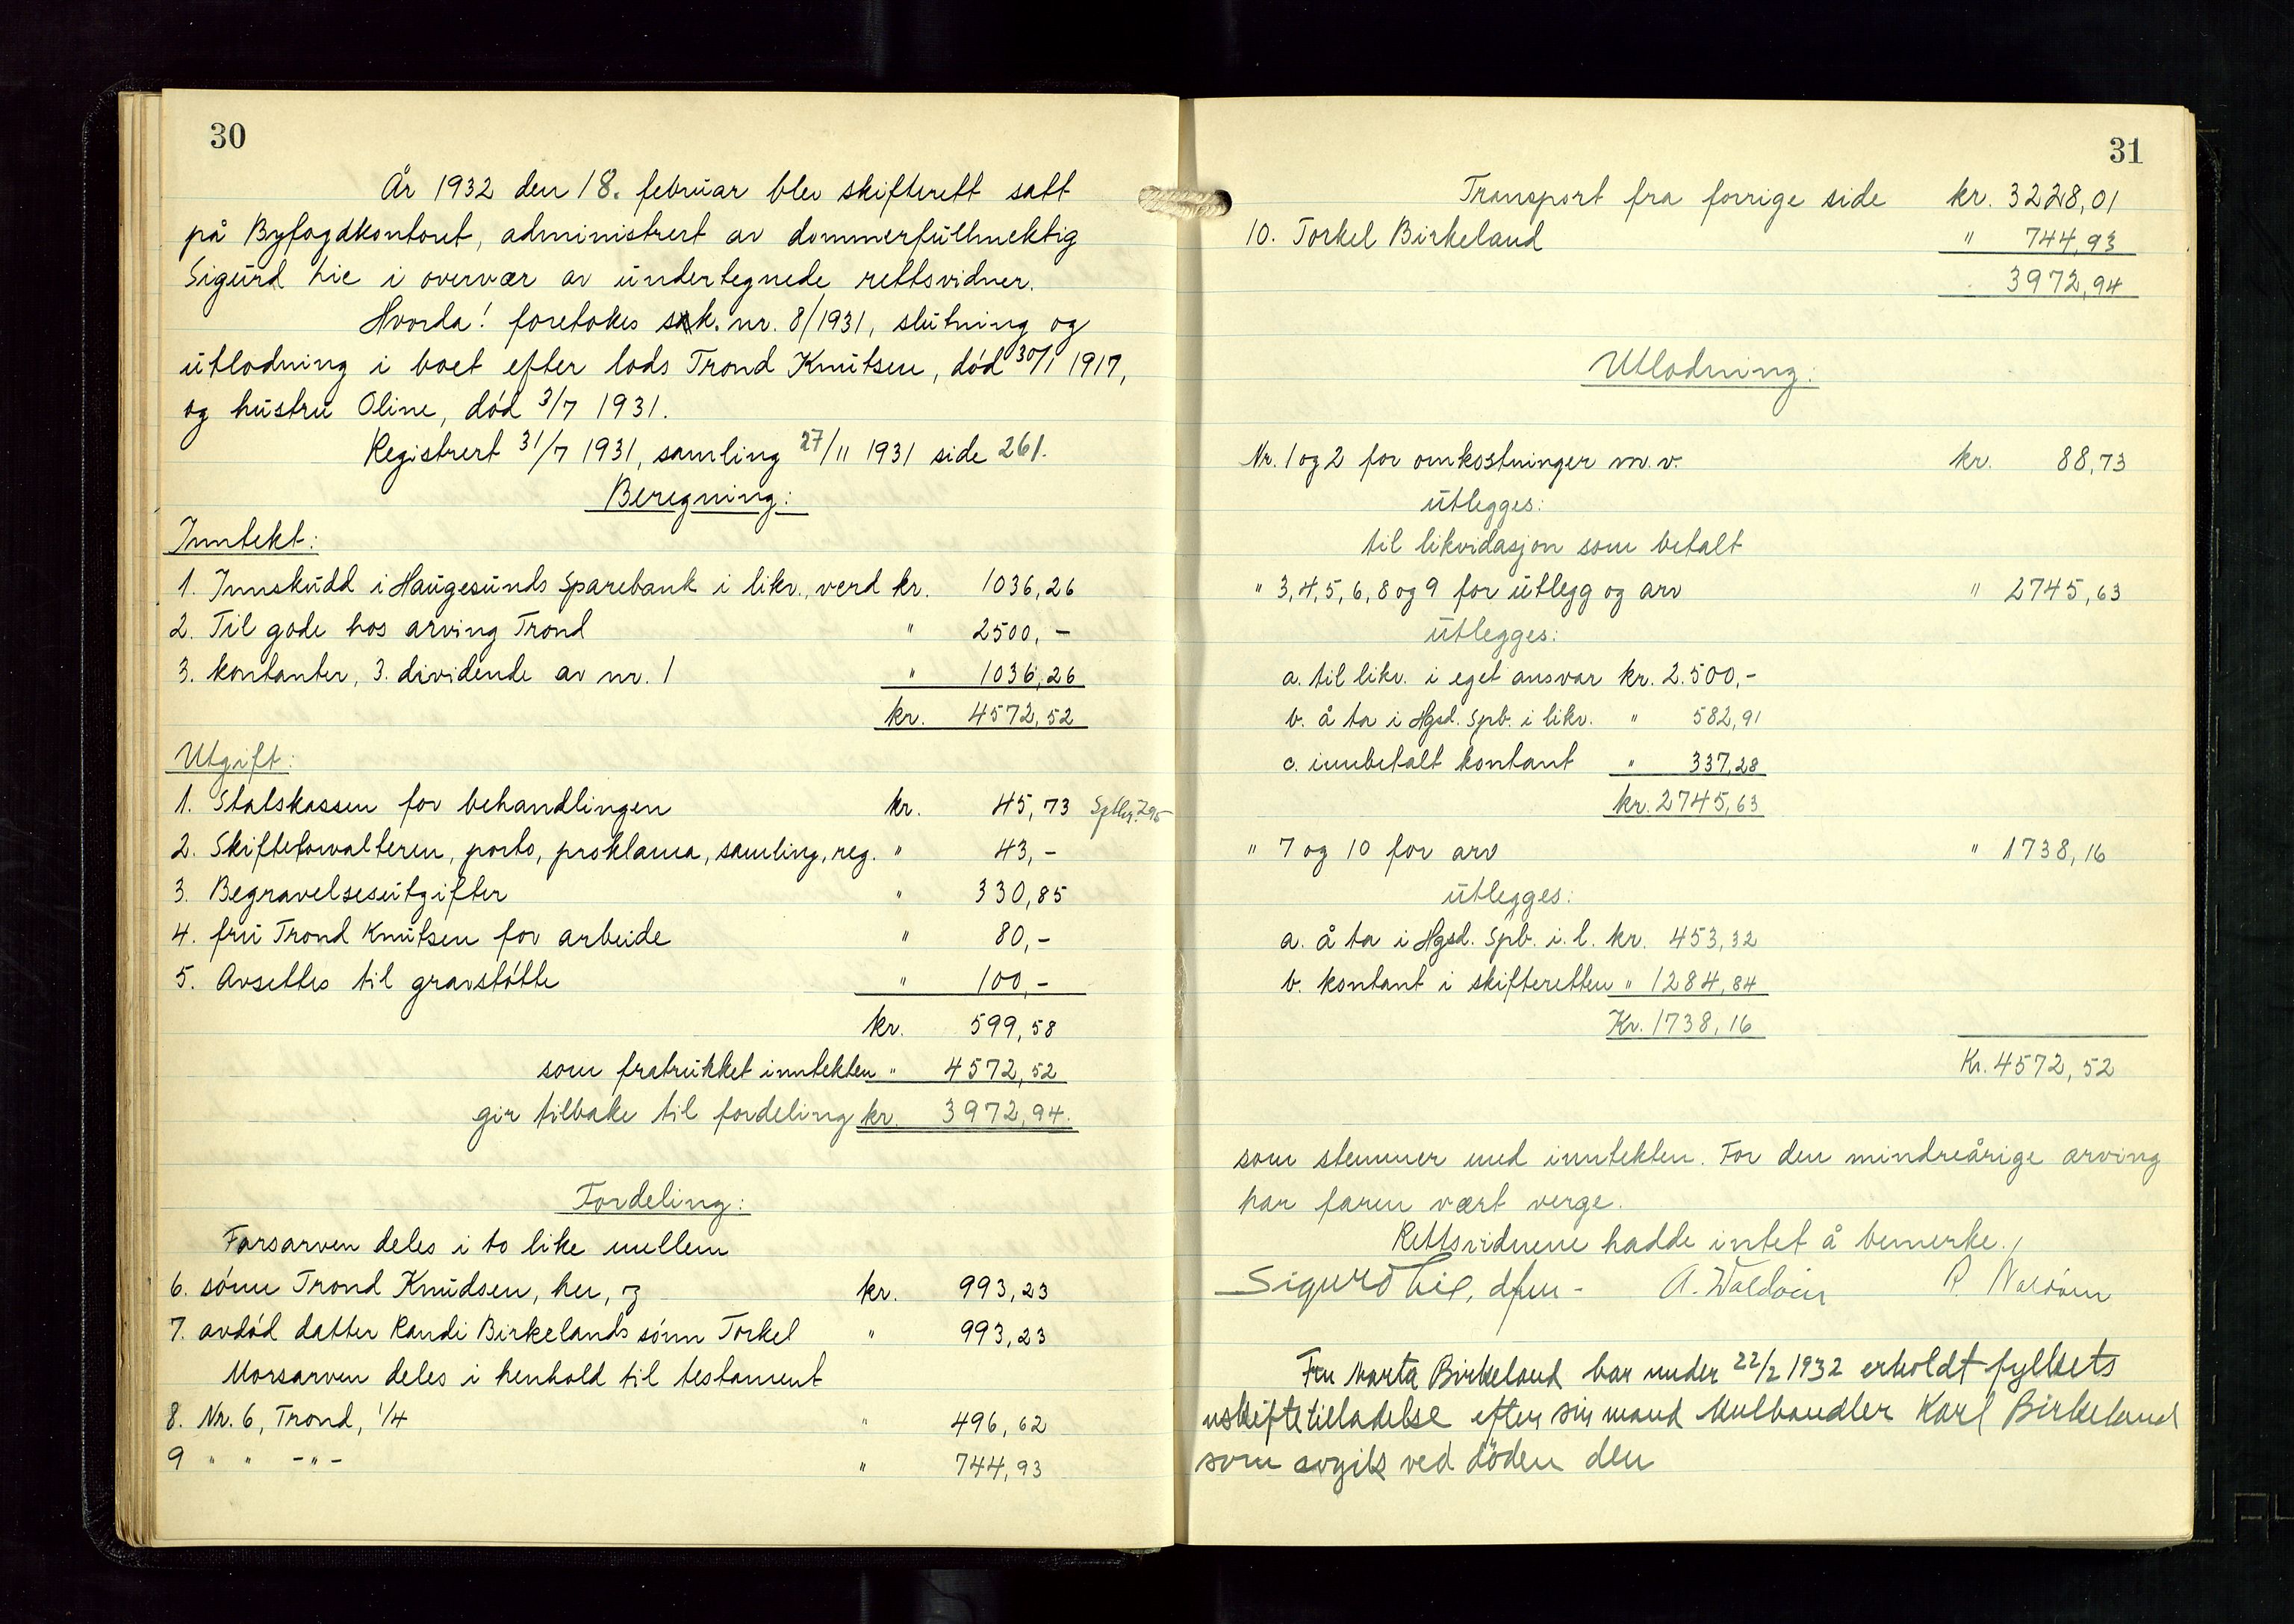 30
År 1932 den 18. februar blev skifterett satt
på Byfogdkontoret, administrert av dommerfullmektig
Sigurd Lie i overvær av undertegnede rettsvidner.
Hvorda! foretokes sak. nr. 8/1931, slutning og
utlodning i boet efter lods Trond Knutsen, död 30/1 1917,
og hustru Oline, död 3/7 1931.
Registrert 31/7 1931, samling 27/11 1931 side 261.
Beregning:
Inntekt:
1. Innskudd i Haugesunds Sparebank i likv., verd kr. 1036,26
2. Til gode hos arving Trond " 2500,-
3. kontanter, 3. dividende av nr. 1 " 1036,26
kr. 4572,52
Utgift:
1. Statskassen for behandlingen kr. 45,73
2. Skifteforvalteren, porto, proklama, samling, reg. " 43,-
3. Begravelsesutgifter " 330,85
4. fru Trond Knutsen for arbeide " 80,-
5. Avsettes til gravstötte " 100,-
kr. 599,58
som fratrukket inntekten " 4572,52
gir tilbake til fordeling kr. 3972,94.
Fordeling:
Farsarven deles i to like mellem
6. sönn Trond Knudsen, her, og kr. 993,23
7. avdöd datter Randi Birkelands sönn Torkel " 993,23
Morsarven deles i henhold til testament
8. Nr. 6, Trond, 1/4 " 496,62
9 " " -"- " 744,93
31
Transport fra forrige side kr. 3228,01
10. Torkel Birkeland " 744,93
3972,94
Utlodning:
Nr. 1 og 2 for omkostninger m.v. kr. 88,73
utlegges:
til likvidasjon som betalt
" 3, 4, 5, 6, 8 og 9 for utlegg og arv " 2745,63
utlegges:
a. til likv. i eget ansvar kr. 2.500,-
b. å ta i Hgsd. Spb. i likv. " 582,91
c. innbetalt kontant " 337,28
kr. 2745,63
" 7 og 10 for arv " 1738,16
utlegges:
a. å ta i Hgsd. Spb. i. l. kr. 453,32
b. kontant i skifteretten " 1284,84
Kr. 1738,16
Kr. 4572,52
som stemmer med inntekten. For den mindreårige arving
har faren vært verge.
Rettsvidnene hadde intet å bemerke.
Sigurd Lie, dfm - A.
Fru Marta Birkeland har under 22/2 1932 erholdt fylkets
uskiftetilladelse efter sin mand Mulhandler Karl Birkeland
som avgik ved döden den